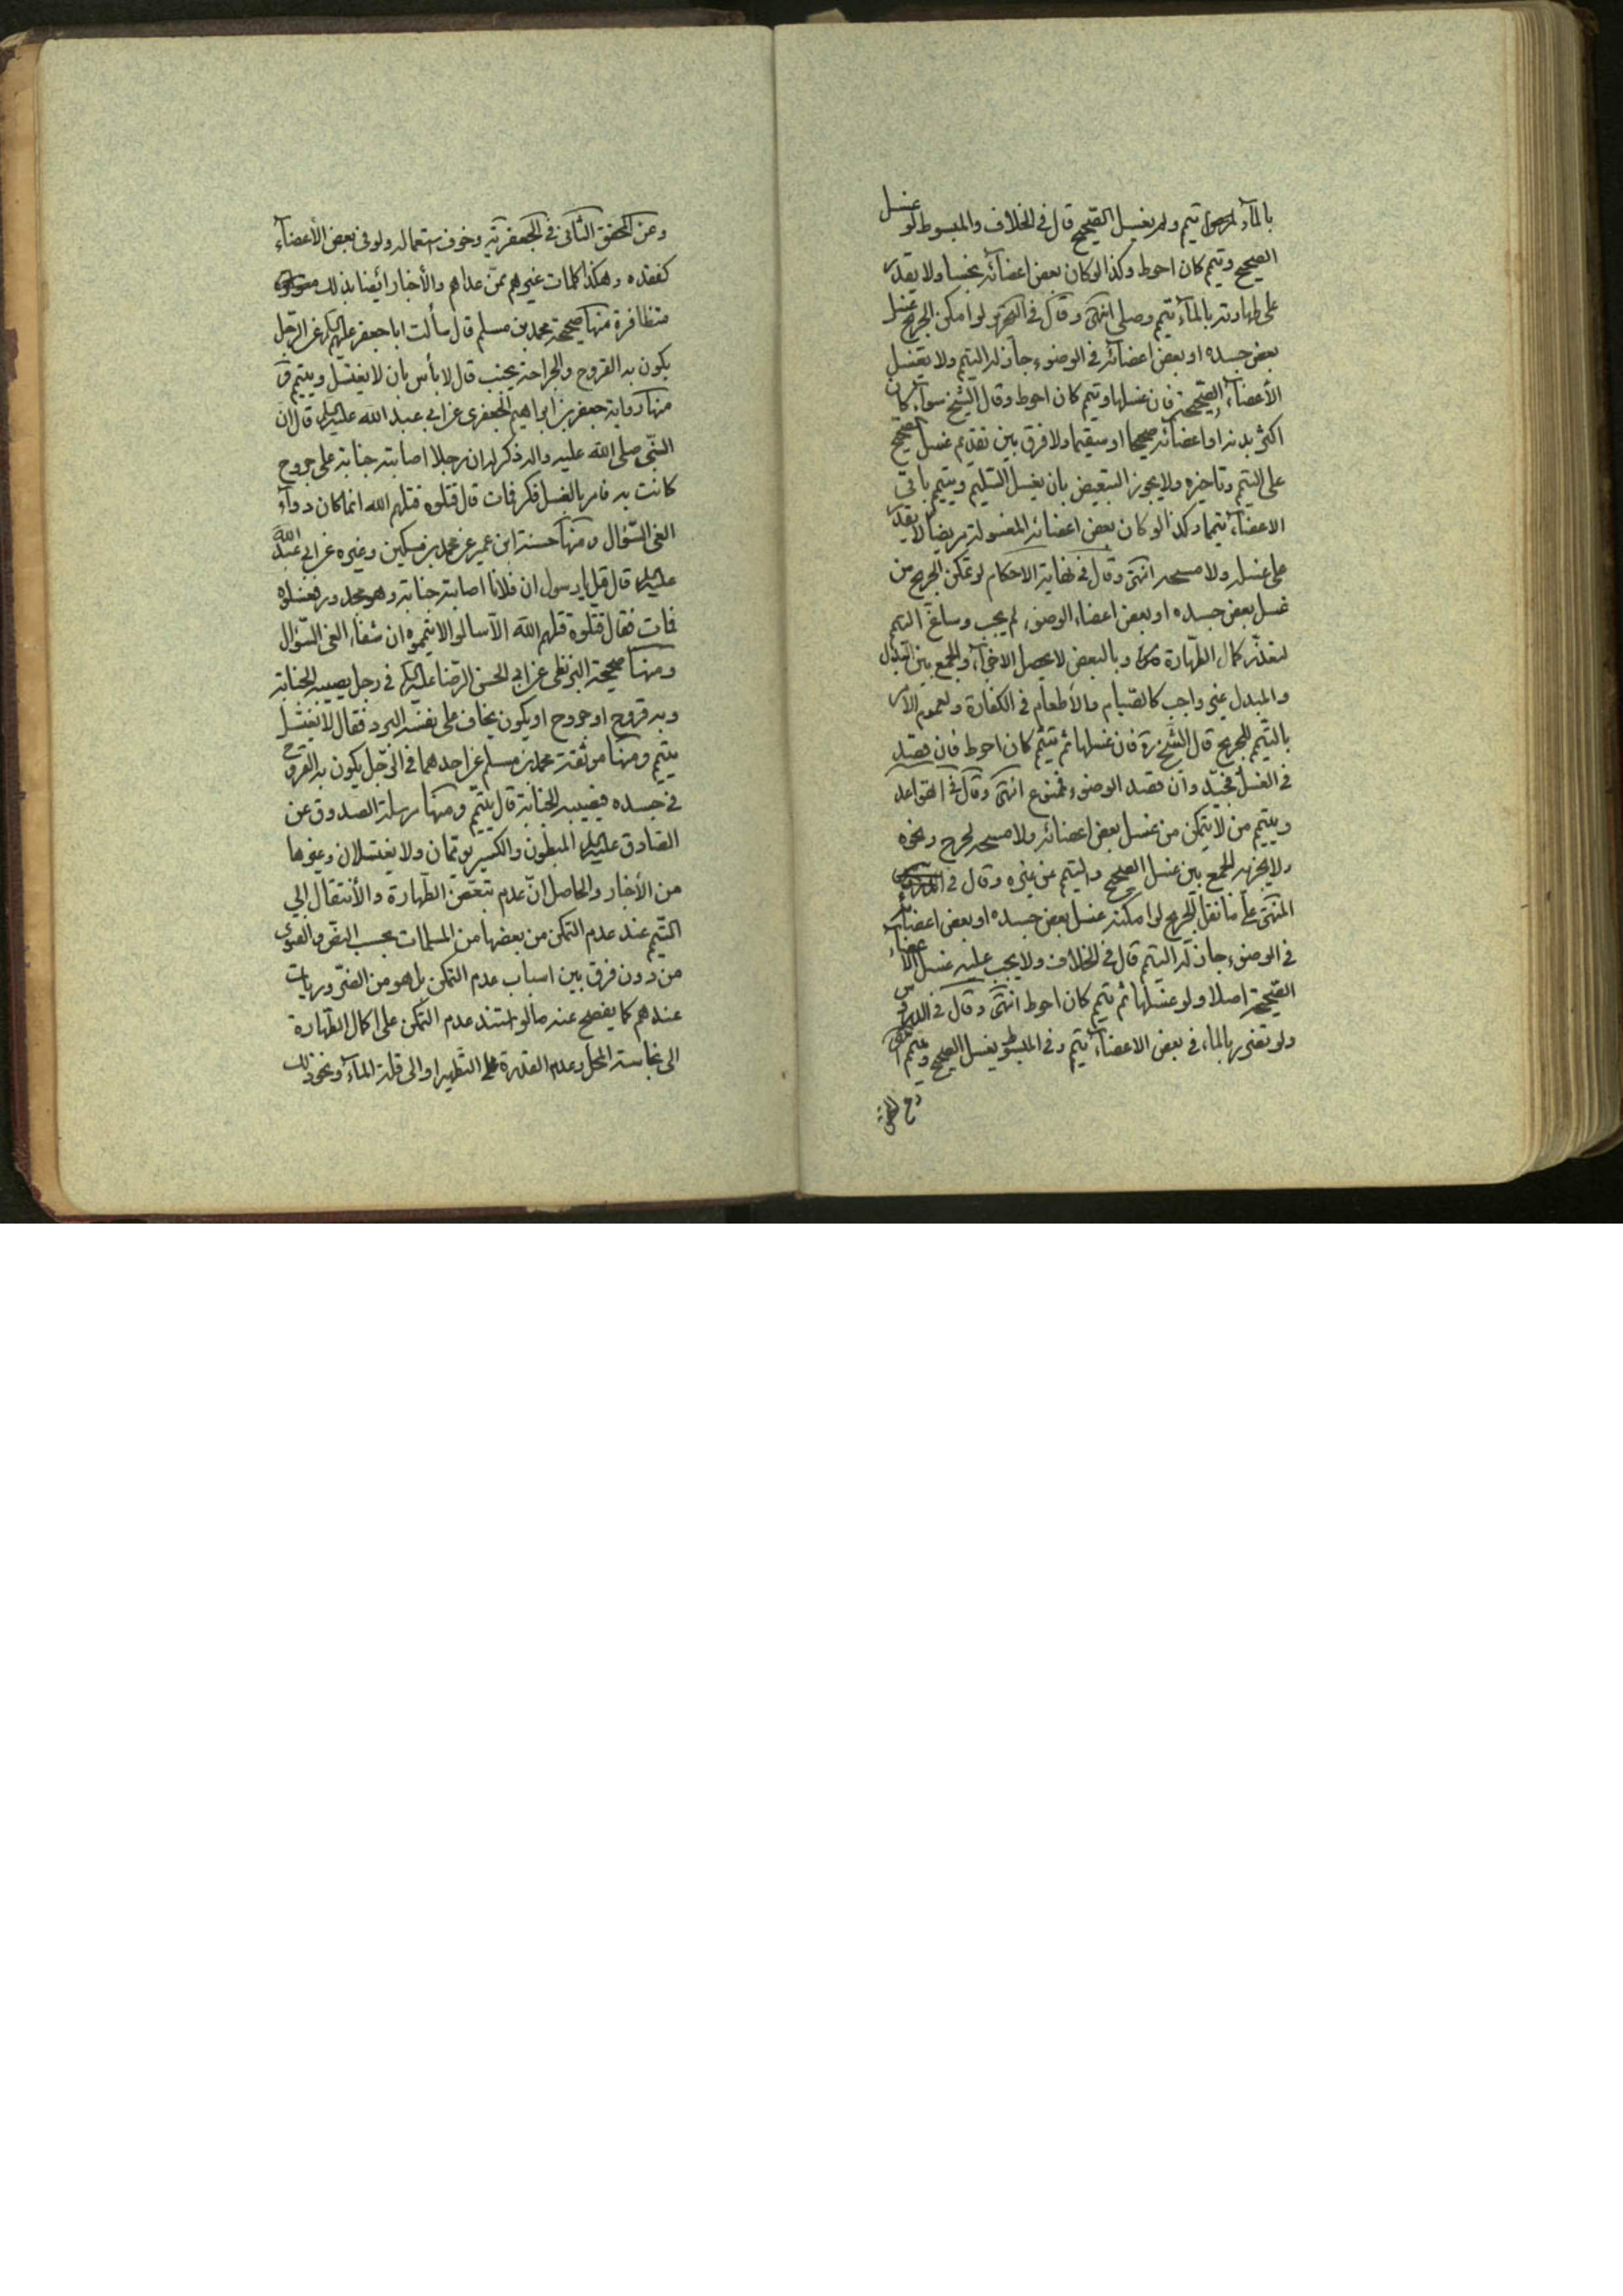 بالمآء تيمم ولم يغسل الصّحيح قال في الخلاف والمبسوط لو غسل
الصحيح وتيمم كان احوط وكذا لو كان بعض اعضآئه نجسا ولا يقدر
على طهارته بالمآء تيمم وصلى انتهى وقال في التحرير لو امكن الجريح غسل
بعض جسده او بعض اعضآئه في الوضوء جاز له التيمم ولا يغسل
الأعضآء الصّحيحة فان غسلها وتيمم كان احوط وقال الشيخ سوآء كان
اكثر بدنه او اعضآئه صحيحا او سقيما ولا فرق بين تقديم غسل الصحيح
على التيمم وتاخيره ولا يجوز التبعيض بان يغسل السّليم ويتيمم باقي
الاعضآء تيمما وكذا لو كان بعض اعضائه المغسولة مريضا لا يقدر
على غسله ولا مسحه انتهى وقال في نهاية الاحكام لو تمكن الجريح من
غسل بعض جسده او بعض اعضاء الوضوء لم يجب وساغ التيمم
لتعذّر كمال الطّهارة وبالبعض لا يحصل الاجزآء والجمع بين البدل
والمبدل غير واجب كالصّيام والأطعام في الكفارة ولعموم الأمر
بالتيمّم للجريح قال الشّيخ ره فان غسلها ثم تيمّم كان احوط فان قصد
في الغسل فجيّد وان قصد الوضوء فممنوع انتهى وقال في القواعد
ويتيمم من لا يتمكن من غسل بعض اعضائه ولا مسحه لجرح ونحوه
ولا يجزيه الجمع بين غسل الصحيح والتيمم عن غيره وقال في
المنتهى على ما نقل الجريح لو امكنه غسل بعض جسده او بعض اعضائه
في الوضوء جاز له التيمم قال في الخلاف ولا يجب عليه غسل الأعضاء
الصّحيحة اصلا ولو غسّلها ثم تيمم كان احوط انتهى وقال في الدروس
ولو تضرر بالماء في بعض الاعضآء تيمم وفي المبسوط يغسل الصحيح ويتيمم
وعن المحقق الثّاني في الجعفريّة وخوف استعماله ولو في بعض الأعضآء
كفقده وهكذا كلمات غيرهم ممّن عداهم والأخبار ايضا بذلك
متظافرة منها صحيحة محمد بن مسلم قال سألت ابا جعفر عليه السلام عن الرّجل
يكون به القروح والجراحة يجنب قال لا بأس بان لا يغتسل ويتيمم و
منها رواية جعفر بن ابراهيم الجعفري عن ابي عبد الله عليه السلام قال ان
النّبي صلى الله عليه واله ذكر له ان رجلا اصابته جنابة على جروح
كانت به فامر بالغسل فكز فمات قال قتلوه قتلهم الله انما كان دوآء
العي السّؤال ومنها حسنة ابن عمير عن محمد بن مسكين وغيره عن ابي عبد الله
عليه السلام قال قيل يا رسول ان فلانا اصابته جنابة وهو مجدور فغسلوه
فمات فقال قتلوه قتلهم الله الّا سالوا الا يمّموه ان شفآء العي السّؤال
ومنها صحيحة البزنطي عن ابي الحسن الرّضا عليه السلام في رجل يصيبه الجنابة
وبه قروح او جروح او يكون يخاف على نفسه البرد فقال لا يغتسل
يتيمم ومنها موثقة محمد بن مسلم عن احدهما في الرّجل يكون به القروح
في جسده فيصيبه الجنابة قال يتيمّم ومنها مرسلة الصدوق عن
الصّادق عليه السلام المبطون والكسير يومّمان ولا يغتسلان وغيرها
من الأخبار والحاصل انّ عدم تبعّض الطّهارة والأنتقال إلي
التّيمم عند عدم التمكن من بعضها من المسلمات بحسب النصّ والفتوى
من دون فرق بين اسباب عدم التمكن بل هو من الضّروريات
عندهم كما يفصح عنه ما لو استند عدم التّمكن على اكمال الطّهارة
الى نجاسة المحل وعدم القدرة على التّطهير او الى قلة المآء ونحو ذلك